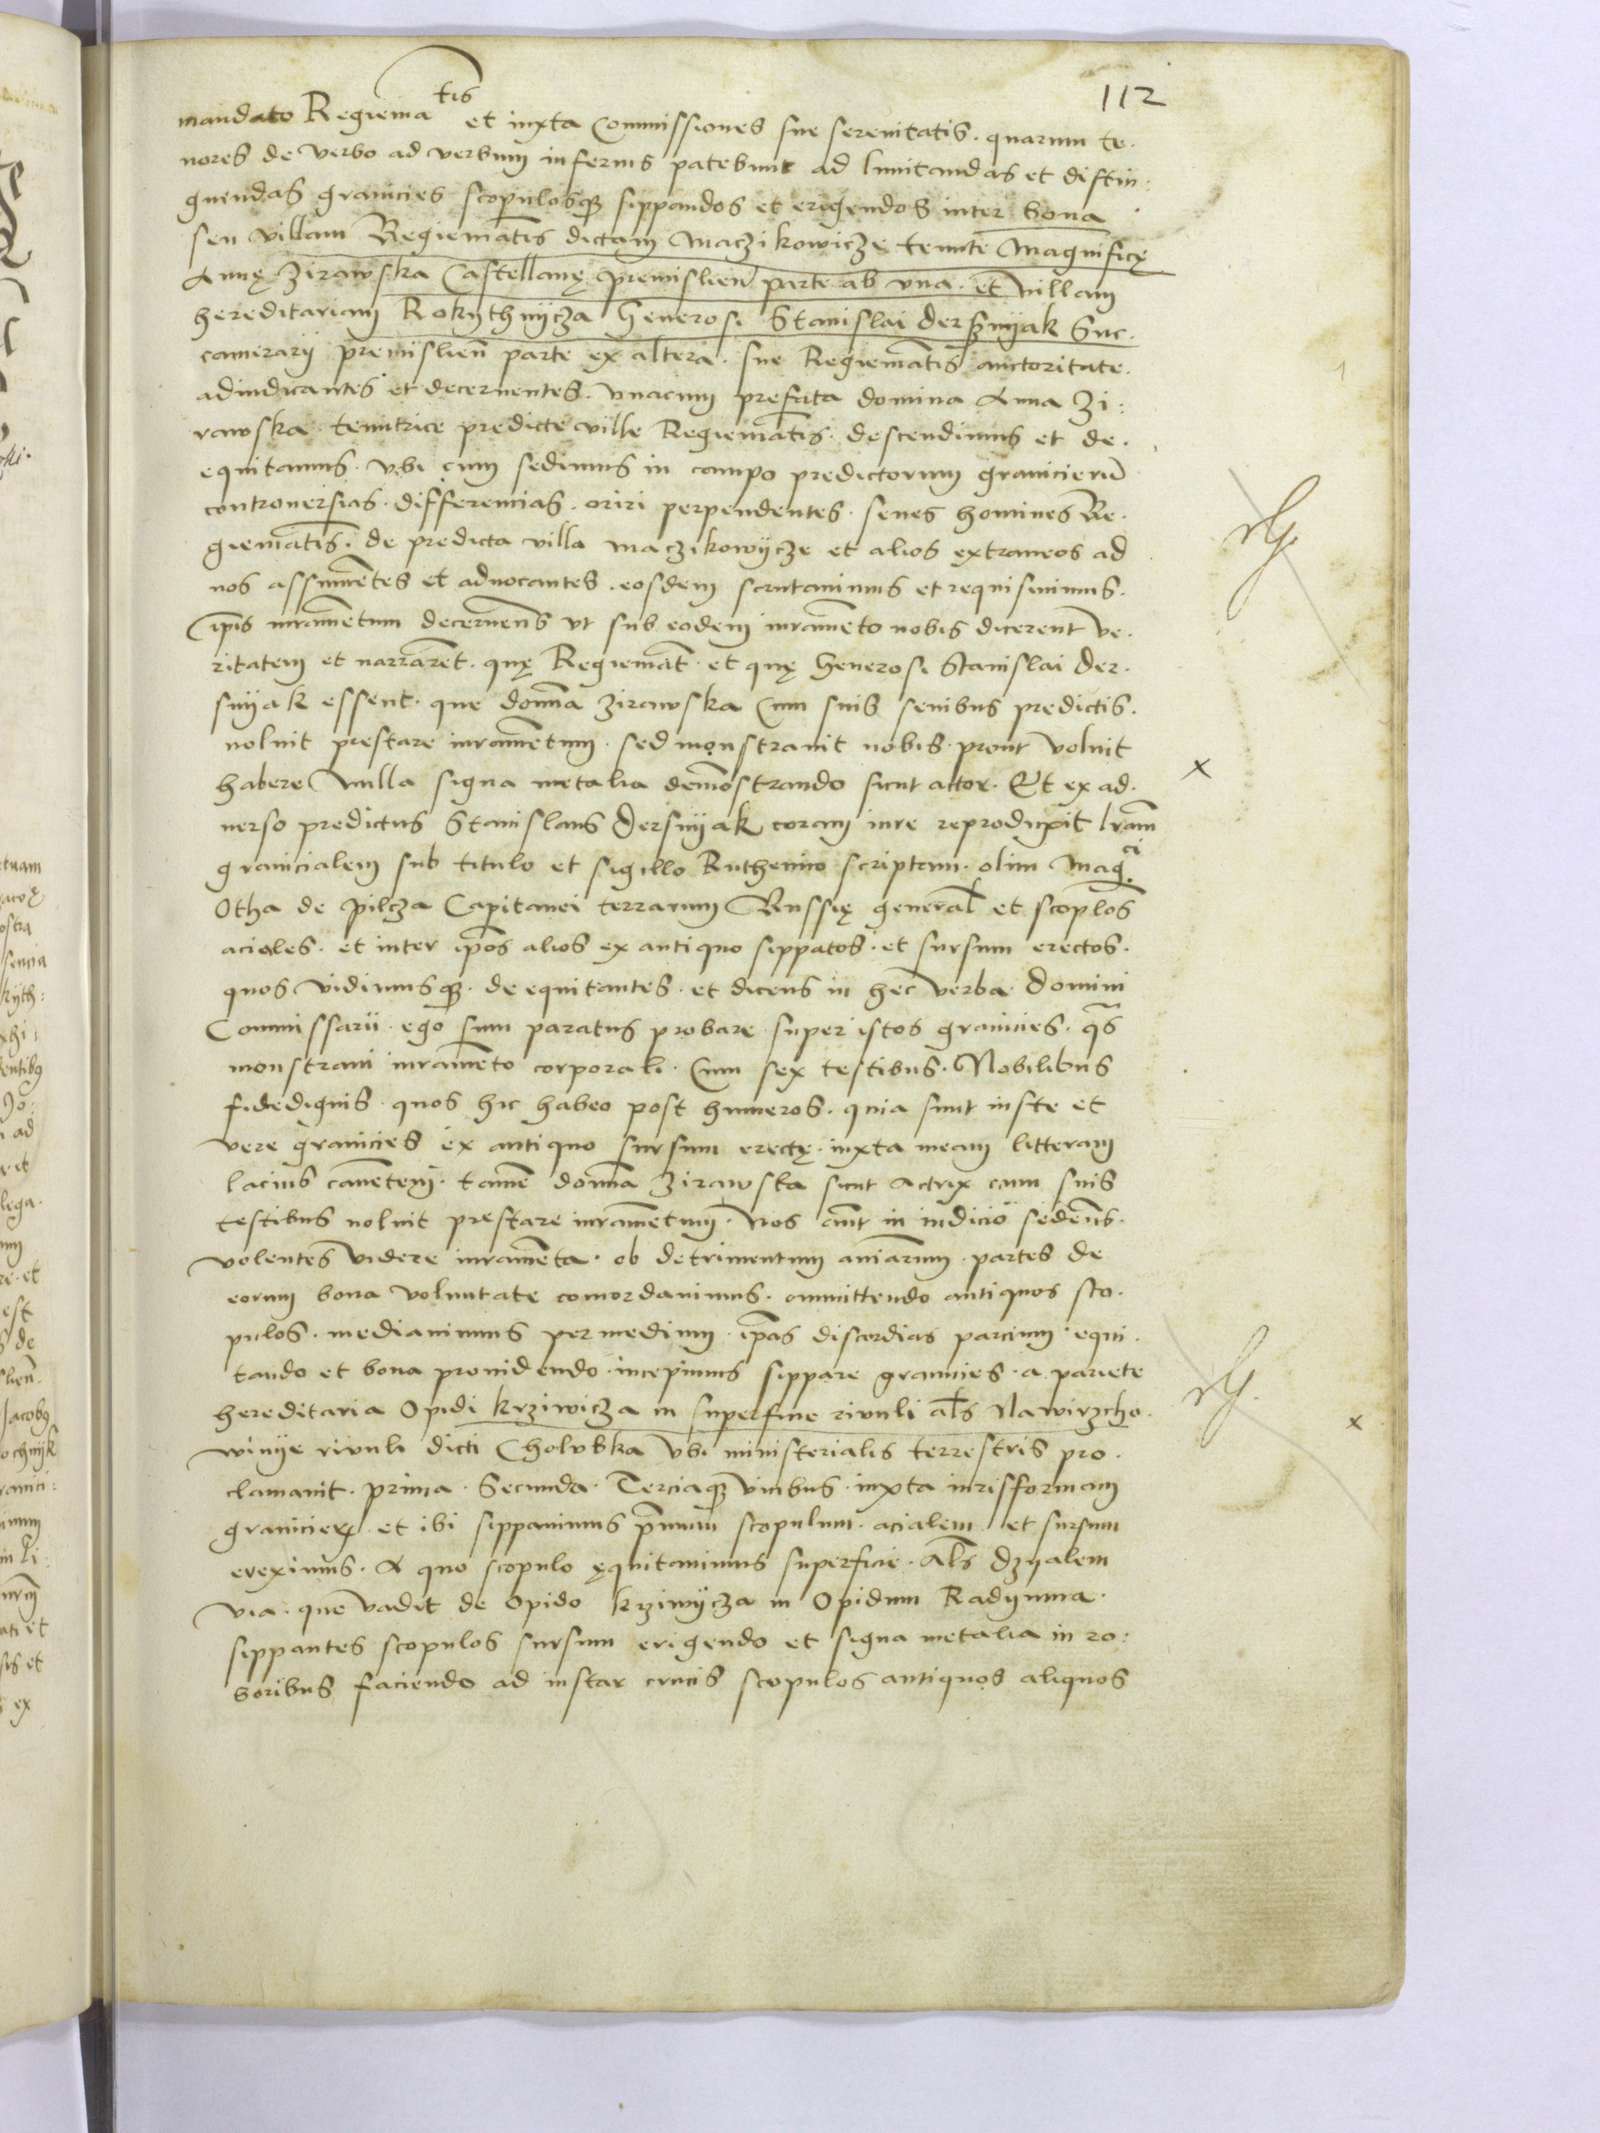 112
mandato Regiema tis et iuxta Commissiones sue serenitatis. quarum te.
nores de verbo ad verbum inferius patebunt ad limitandas et distin:
guendas granicies scopulosq sippandos et erigendos inter bona
seu villam Regiematis dictam Maczikowicze tente Magnifice
Annę Zirawska Castellanę premislien parte ab vna. et villam
hereditariam Rokythnycza Generosi Stanislai Dersznyak Suc.
camerarij premislien parte ex altera. sue Regiematis auctoritate.
adiudicantes et decernentes. vnacum prefata domina Anna Zi:
rawska. tenutrice predicte ville Regiematis. descendimus et de.
equitamus. vbi cum sedimus in campo predictorum granicieru
controuersias. differencias. oriri perpendentes. senes homines Re.
giematis. de predicta villa Maczikowycze et alios extraneos ad
nos assumetes et aduocantes. eosdem scrutauimus et requisiuimus.
ipis iurametum decernens vt sub eodem iurameto nobis dicerent ve.
ritatem et narraret. quę Regiemat. et quę Generosi Stanislai Der.
snyak essent. que domna Zirawska Cum suis senibus predictis.
noluit prestare iurametum. sed monstrauit nobis. prout voluit
habere Nulla signa metalia demostrando sicut actor. Et ex ad.
uerso predictus Stanislaus Dersnyak coram iure reproduxit lram
granicialem sub titulo et sigillo Ruthenico scriptam. olim Mag. ci
Otha de Pilcza Capitanei terrarum Russię general et scoplos
aciales. et inter ipos alios ex antiquo sippatos. et sursum erectos.
quos vidimusq. de equitantes. et dicens in hec verba. Domini
Commissarii. ego sum paratus probare super istos granicies. qs
monstraui iurameto corporali. Cum sex testibus. Nobilibus
fidedignis. quos hic habeo post humeros. quia sunt iuste et
vere granicies ex antiquo sursum erectę. iuxta meam litteram
lacius canetem. tame domna Zirawska sicut actrix cum suis
testibus noluit prestare iurametum. Nos aut in iudicio sedens.
volentes videre iurameta. ob detrimentum aniarum. partes de
eorum bona voluntate concordauimus. ommittendo antiquos sco.
pulos. mediauimus per medium. ipas discordias parcium. equi.
tando et bona prouidendo. incepimus sippare granicies. a pariete
hereditaria Opidi krziwicza in superfine riuuli als Nawirzcho.
winye riuuli dicti Cholvbka vbi ministerialis terrestris pro.
clamauit. prima. Secunda. Terciaq vicibus. iuxta iurisformam
granicierx. et ibi sippauimus pmum scopulum. acialem et sursum
ereximus. A quo scopulo ęquitauimus superficie. Als dzyalem
via. que vadit de Opido krziwycza in Opidum Radymna.
sippantes scopulos sursum erigendo et signa metalia in ro:
boribus faciendo ad instar crucis scopulos antiquos aliquos